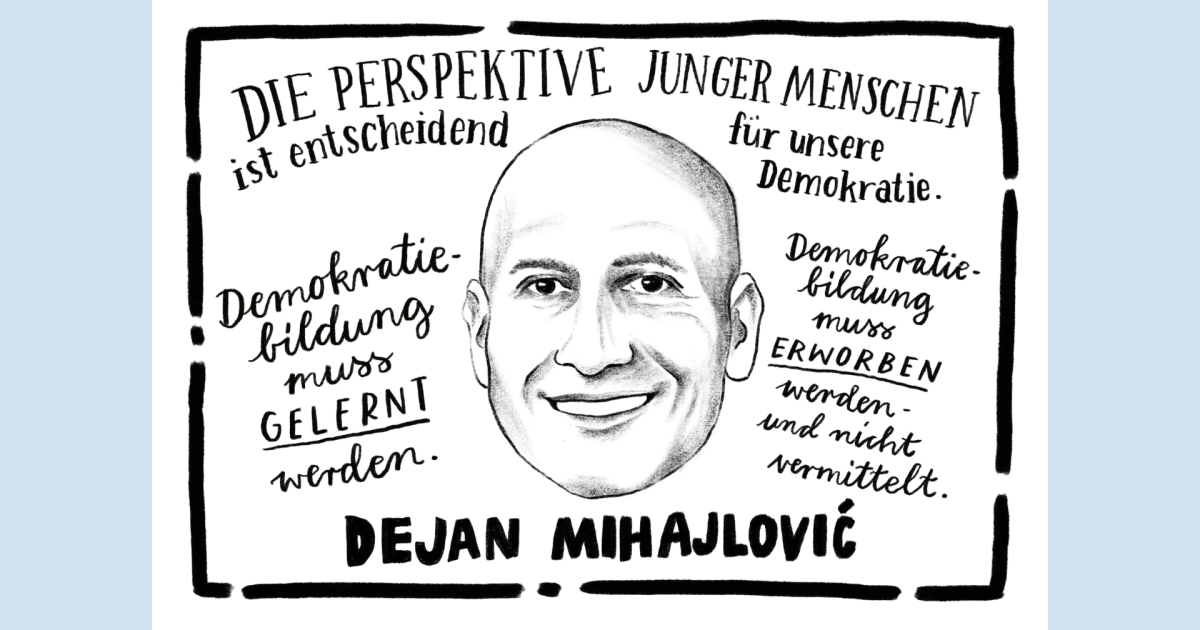 DIE PERSPEKTIVE JUNGER MENSCHEN
ist entscheidend für unsere
Demokratie.
Demokratie-
bildung
muss
GELERNT
werden.
Demokratie-
bildung
muss
ERWORBEN
werden-
und nicht
vermittelt.
DEJAN MIHAJLOVIĆ